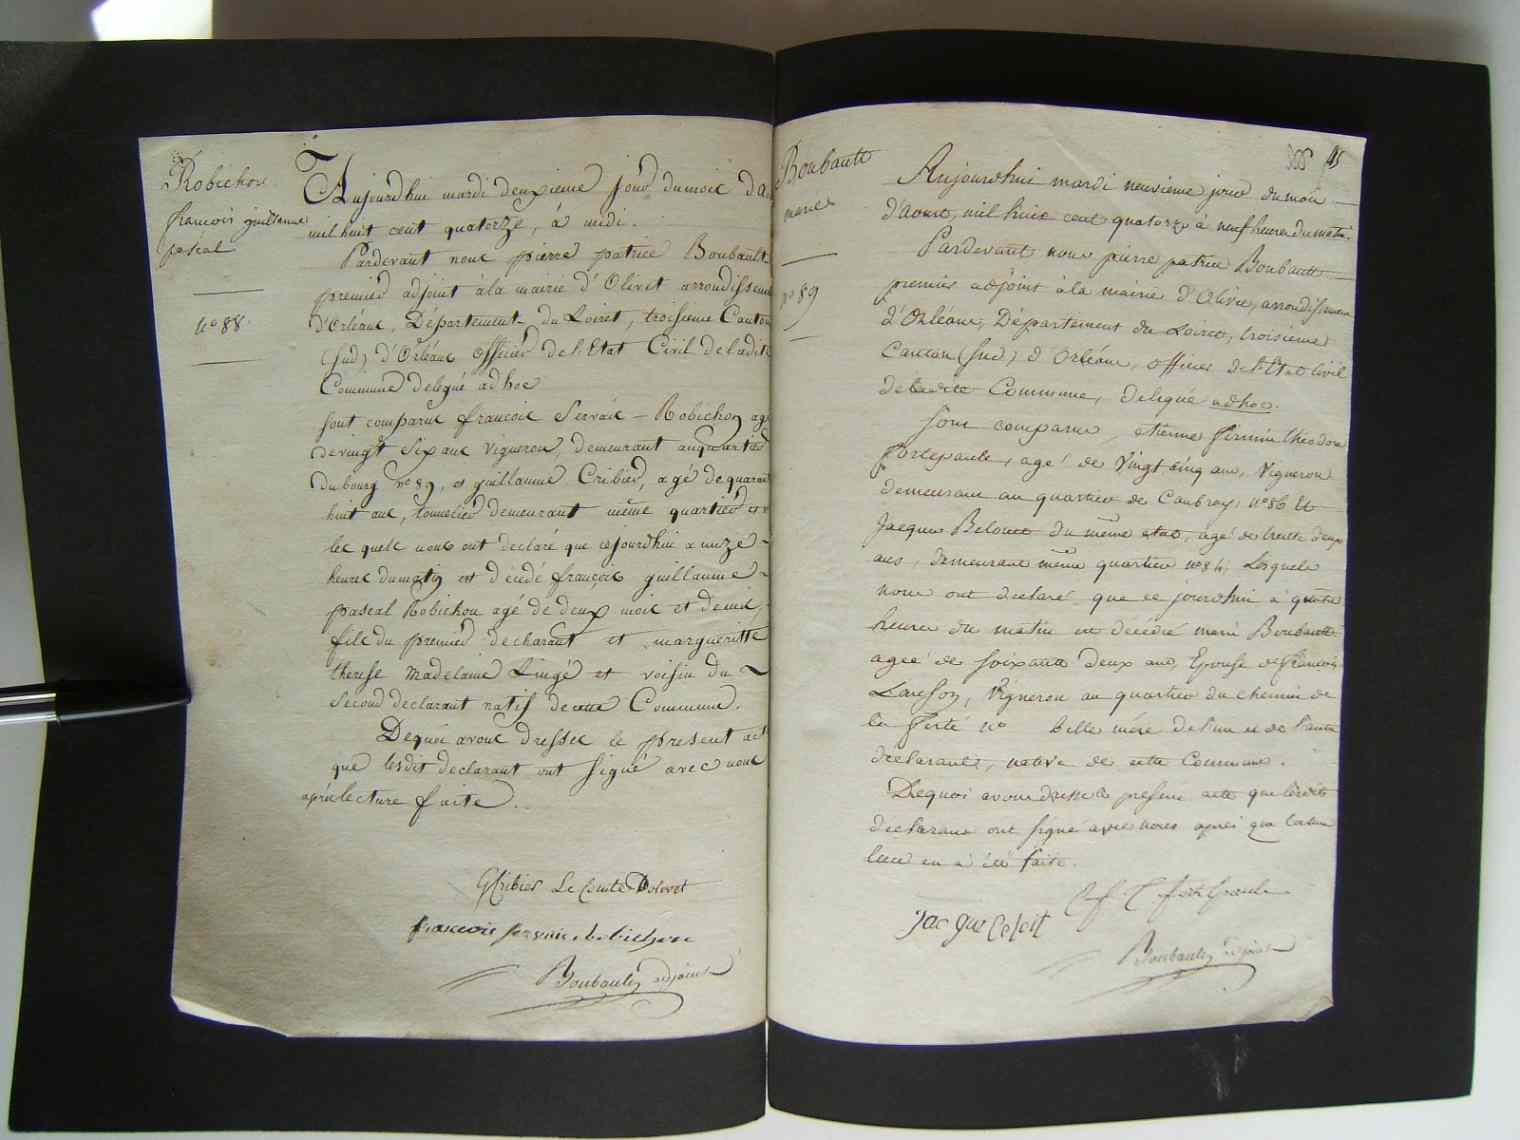 Robichon
françois guillaume
pascal
n° 88.
Aujourdhui mardi deuxieme jour dumois da
mil huit cent quatorze, à midi.
Pardevant nous pierre patrice Boubault
premier adjoint àla mairie d'Olivet arrondissem
d'Orléans, Département du Loiret, troisieme Canton
(sud) d'Orléans officier de l'Etat Civil deladite
Commune delegué ad hoc
sont comparus françois Servais - Robichon agé
devingt six ans vigneron, demeurant auquartier
dubourg n° 89, et guillaume Cribier, agé dequarante
huit ans, tonnelier demeurant même quartier
les quels nous ont declaré que cejourdhui a onze
heures dumatin est décédé françois guillaume
pascal Robichon agé de deux mois et demi,
fils du premier declarant et margueritte
therese Madelaine Lingé et voisin du
Second declarant natif de cette Commune.
Dequoi avons dressé le present acte
que lesdit declarant ont signé avec nous
après lecture faite.
GCribier Le Comte Dolivet
francois servais robichon
Boubault adjoint
115
Boubault
marie
n° 89
Aujourdhui mardi neuvieme jour du mois
d'aoust, mil huit cent quatorze à neuf heures du matin.
Pardevant nous pierre patrice Boubault
premier adjoint à la mairie d'Olivet, arrondissement
d'Orléans, Département du Loiret, troisieme
Canton (sud) d'Orléans, officier de l'Etat Civil
de ladite Commune, delegué adhoc.
Sont comparus, etienne firmin theodore
fortepaule, agé de vingt cinq ans, vigneron
demeurant au quartier de Caubray, n° 86 et
Jacques Beloit du même etat, agé de trente deux
ans, demeurant même quartier n° 84, lesquels
nous ont declaré que ce jourdhui à quatre
heures du matin est décédé marie Boubault
ageé de soixante deux ans, Epouse de françois
Lanson, vigneron au quartier du chemin de
la ferté n° belle mère de l'un et de l'autre
declarants, native de cette Commune.
Dequoi avons dressé le present acte que lesdits
declarans ont signé avec nous après que lecture
leur en a été faite.
Jacque Beloit
Boubault adjoint